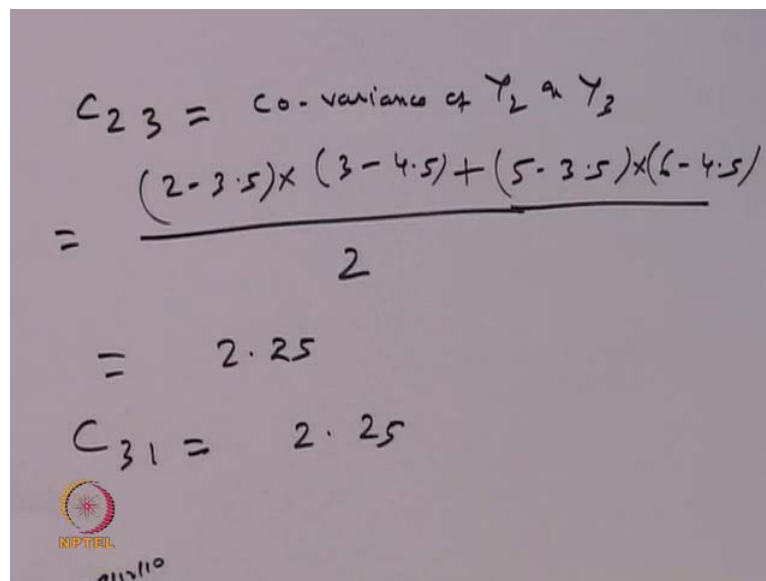 C₂₃ = Co-variance of Y₂ & Y₃
= (2 - 3.5) × (3 - 4.5) + (5 - 3.5) × (6 - 4.5) / 2
= 2.25
C₃₁ = 2.25
NPTEL